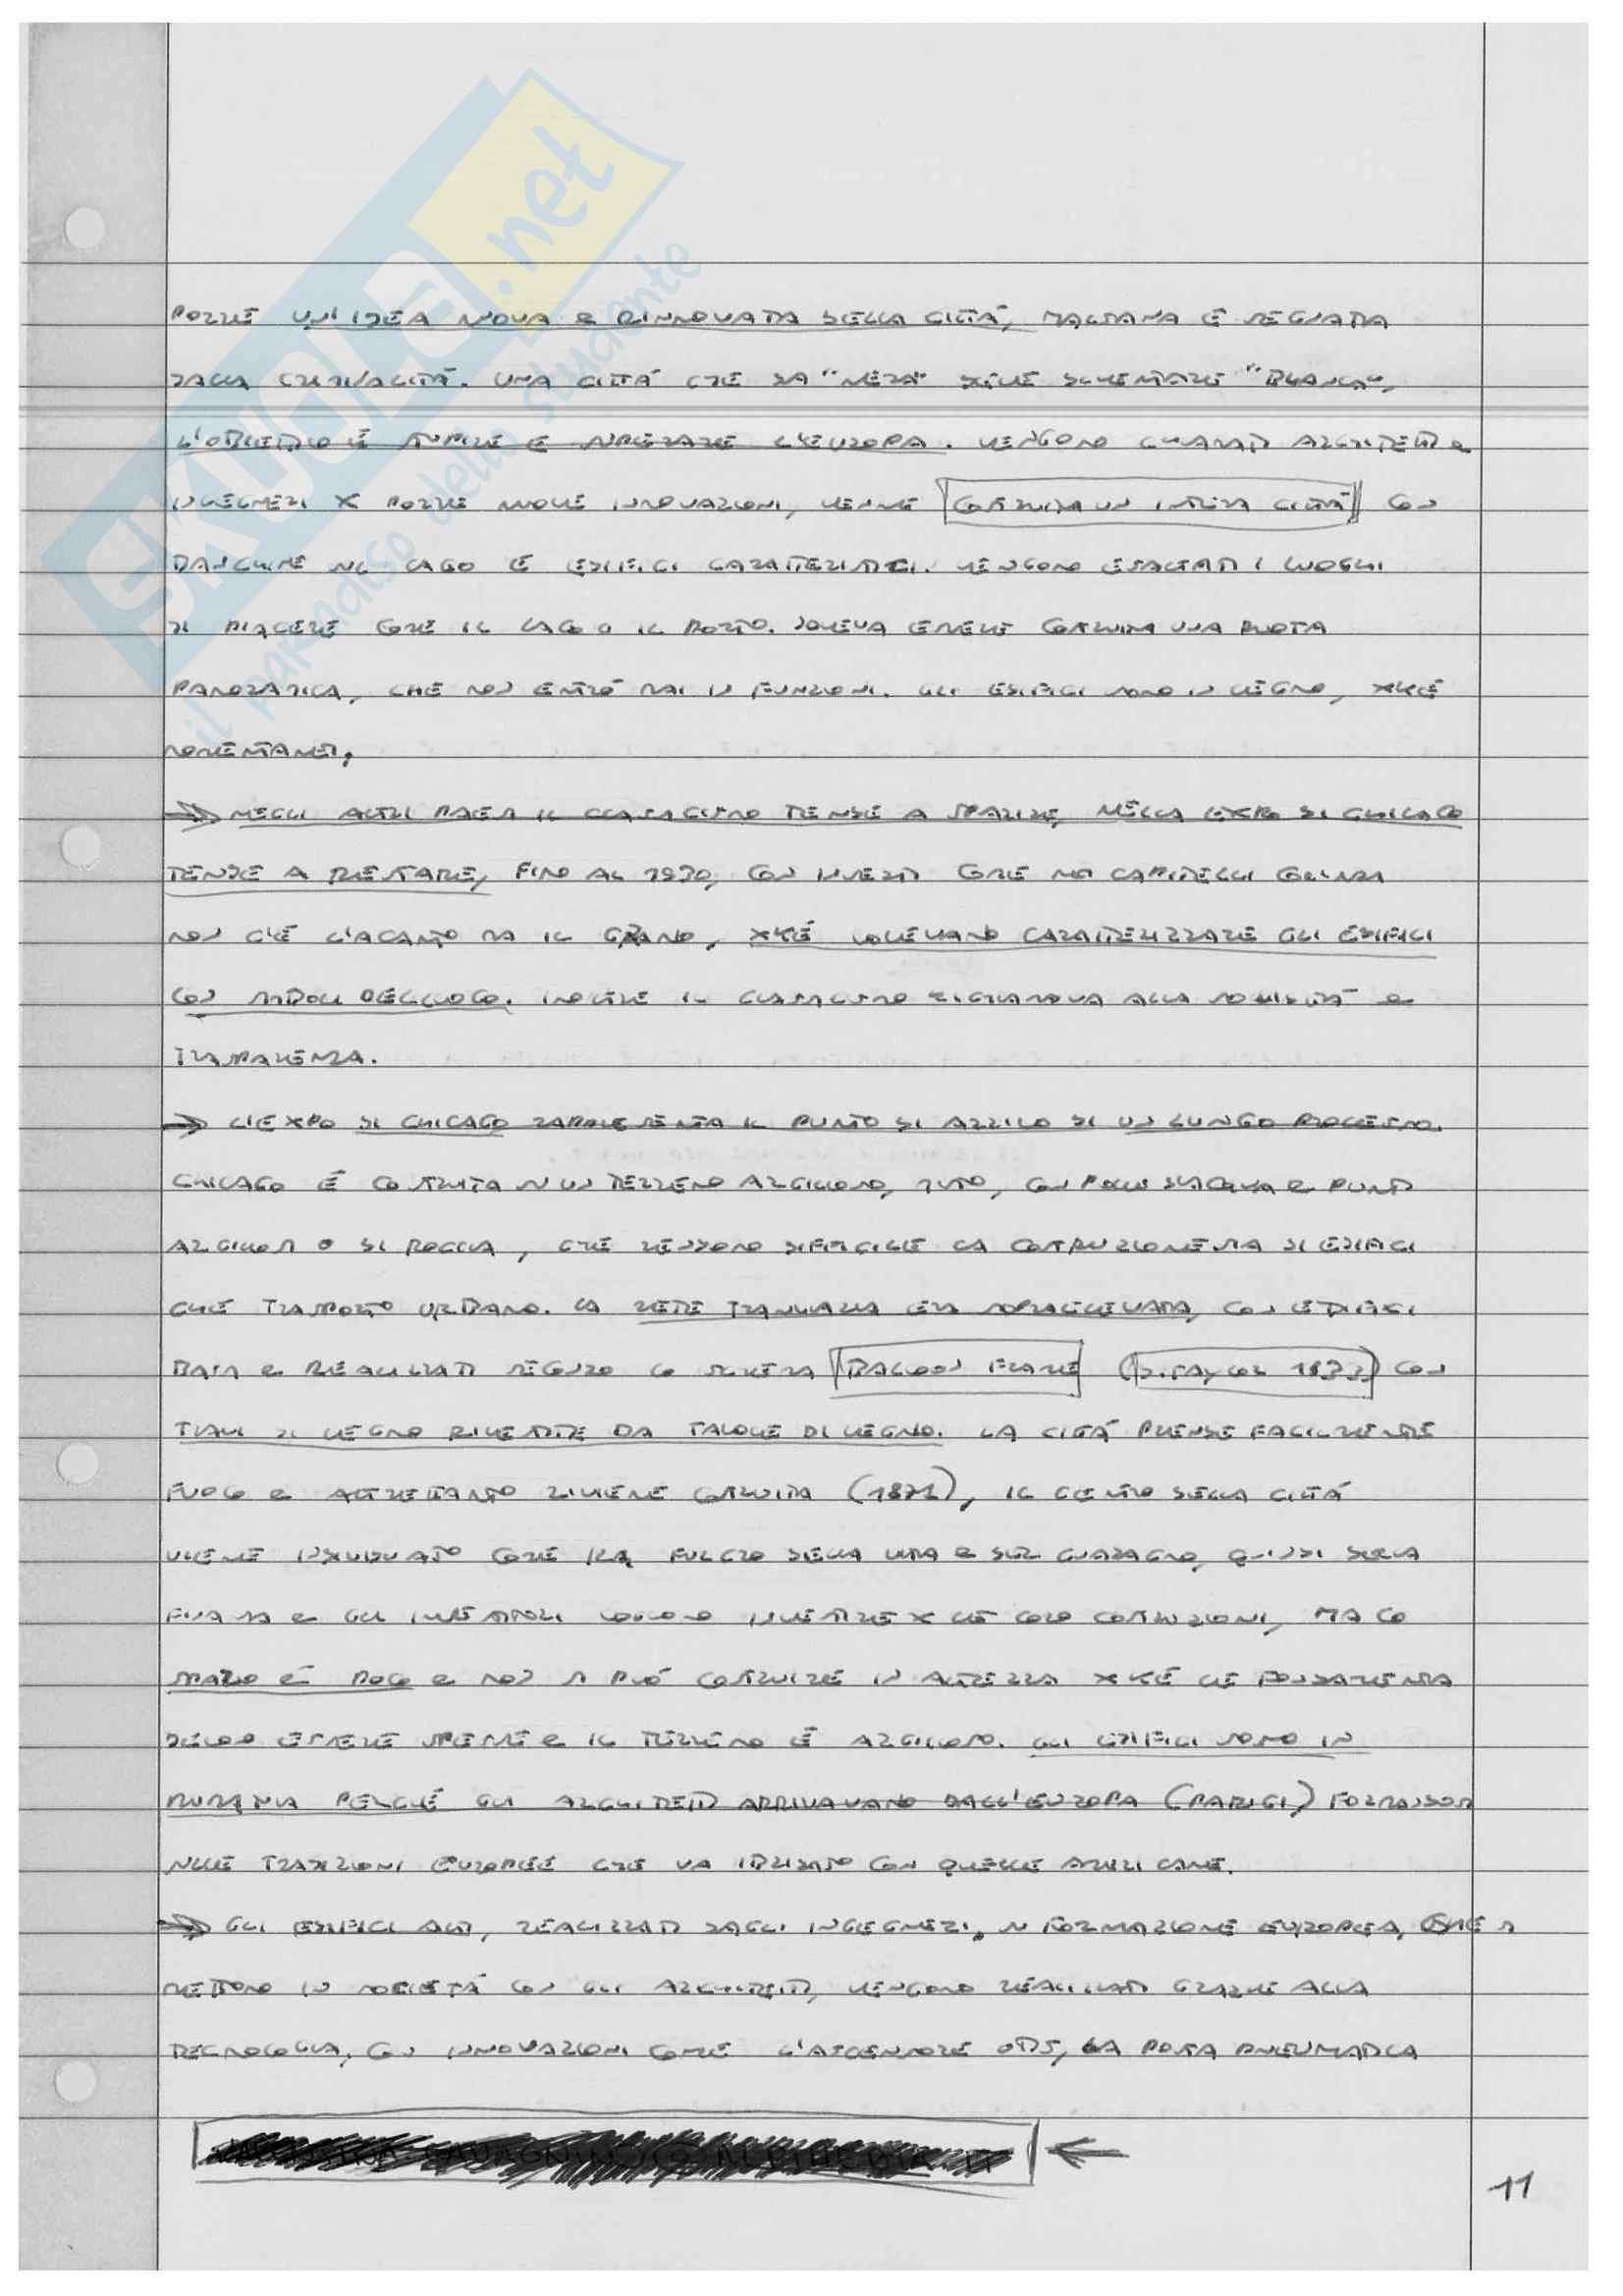 SKUOLA.net
il paradiso dello studente
PORRE UN'IDEA NUOVA e RINNOVATA DELLA CITTÀ, MALSANA E SEGNATA
DALLA CRIMINALITÀ. UNA CITTÀ CHE DA "NERA" DEVE DIVENTARE "BIANCA",
L'OBIETTIVO È STUPIRE E SUPERARE L'EUROPA. VENGONO CHIAMATI ARCHITETTI e
INGEGNERI X PORRE NUOVE INNOVAZIONI, VENNE COSTRUITA UN INTERA CITTÀ CON
BANCHINE NEL LAGO E EDIFICI CARATTERISTICI. VENGONO ESALTATI I LUOGHI
DI PIACERE COME IL LAGO O IL PORTO. DOVEVA ESSERE COSTRUITA UNA RUOTA
PANORAMICA, CHE NON ENTRÒ MAI IN FUNZIONI. GLI EDIFICI SONO IN LEGNO, XKÉ
MOMENTANEI.
→ NEGLI ALTRI PAESI IL CLASSICISMO TENDE A SPARIRE, NELLA EXPO DI CHICAGO
TENDE A RESTARE, FINO AL 1930, CON INSERTI COME NEI CAPITELLI COLONNA
NON C'È L'ACANTO MA IL GRANO, XKÉ VOLEVANO CARATTERIZZARE GLI EDIFICI
CON SIMBOLI DEL LUOGO. INOLTRE IL CLASSICISMO RICHIAMAVA ALLA SOLIDITÀ e
TRASPARENZA.
→ L'EXPO DI CHICAGO RAPPRESENTA IL PUNTO DI ARRIVO DI UN LUNGO PROCESSO.
CHICAGO È COSTRUITA SU UN TERRENO ARGILLOSO, CON POLLE D'ACQUA e PUNTI
ARGILLOSI O DI ROCCIA, CHE RENDONO DIFFICILE LA COSTRUZIONE SIA DI EDIFICI
CHE TRASPORTO URBANO. LA RETE TRANVIARIA ERA SOPRAELEVATA, CON EDIFICI
BASSI e REALIZZATI SECONDO LO SCHEMA BALLOON FRAME (S. TAYLOR 1833) CON
TRAVI DI LEGNO RIVESTITE DA TAVOLE DI LEGNO. LA CITTÀ PRENDE FACILMENTE
FUOCO e ALTRETTANTO RIVIENE COSTRUITA (1871), IL CENTRO DELLA CITTÀ
VIENE INDIVIDUATO COME FULCRO DELLA VITA e DEL GUADAGNO, QUINDI DELLA
FINANZA e GLI INVESTITORI VOGLIONO INVESTIRE X LE LORO COSTRUZIONI, MA LO
SPAZIO È POCO e NON SI PUÒ COSTRUIRE IN ALTEZZA XKÉ LE FONDAMENTA
DEVONO ESSERE SPESSE e IL TERRENO È ARGILLOSO. GLI EDIFICI SONO IN
MURATURA PERCHÉ GLI ARCHITETTI ARRIVAVANO DALL'EUROPA (PARIGI) FORMANDOSI
SULLE TRADIZIONI EUROPEE CHE VA IBRIDATO CON QUELLE AMERICANE.
→ GLI EDIFICI ALTI, REALIZZATI DAGLI INGEGNERI, DI FORMAZIONE EUROPEA, CHE SI
METTONO IN SOCIETÀ CON GLI ARCHITETTI, VENGONO REALIZZATI GRAZIE ALLA
TECNOLOGIA, CON INNOVAZIONI COME L'ASCENSORE OTIS, LA POSTA PNEUMATICA
11